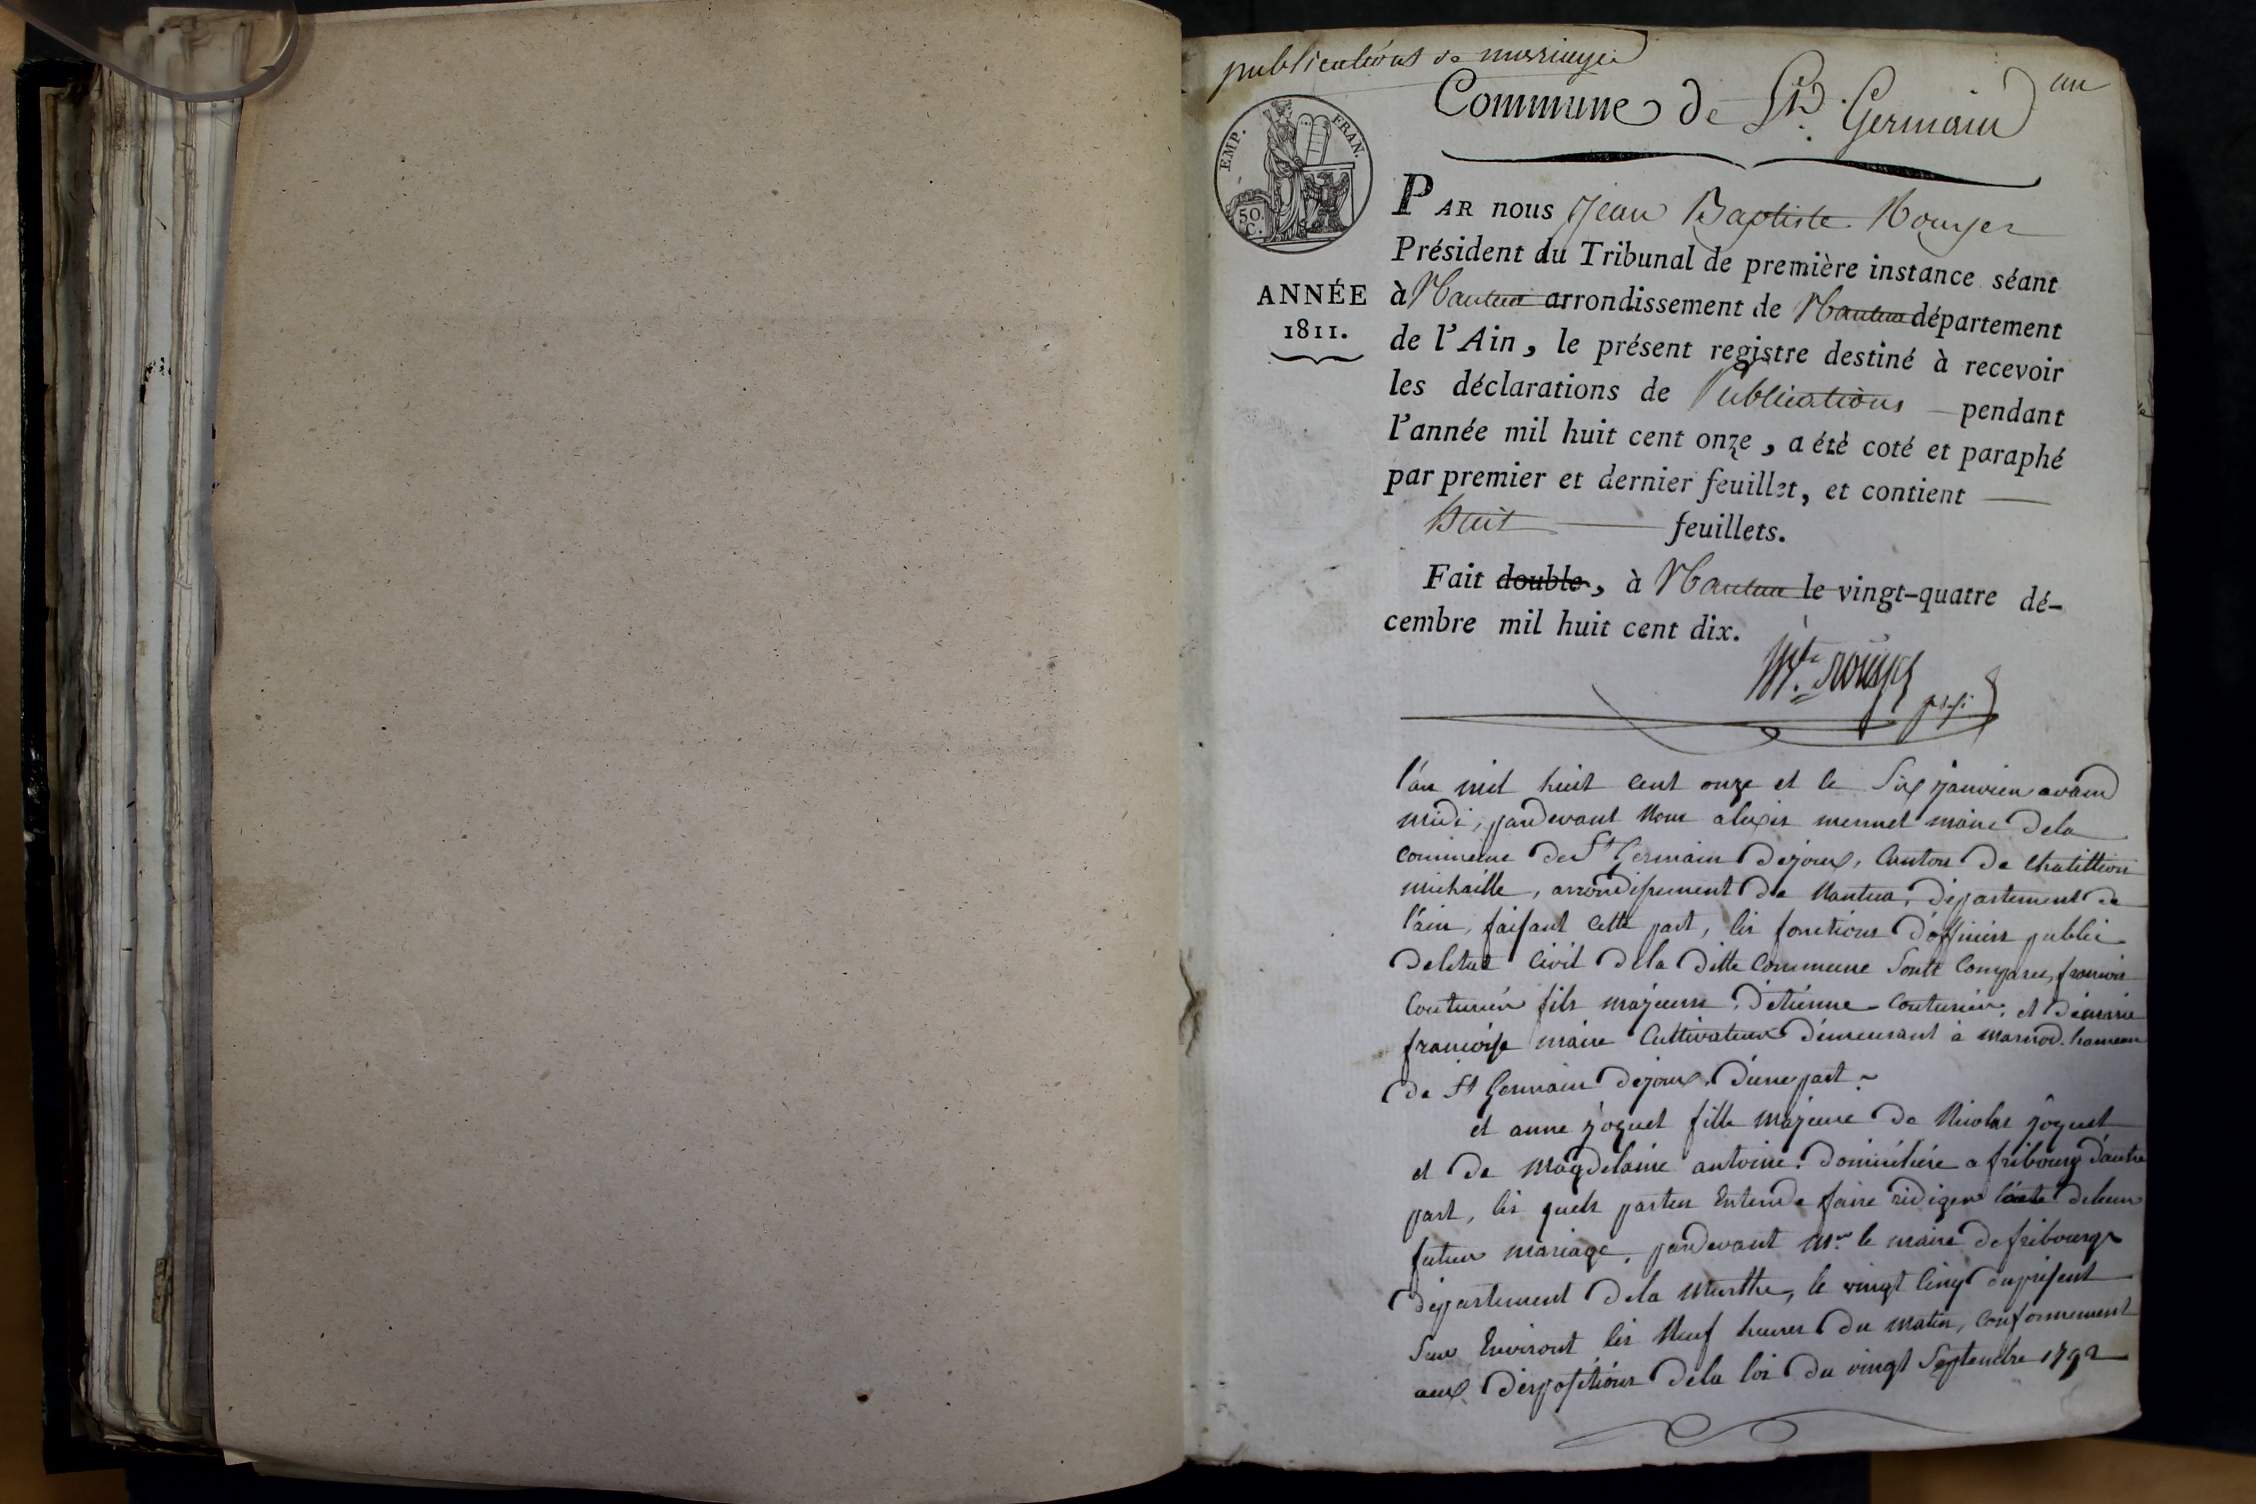 publications de mariages
un
Commune de St. Germain
EMP. FRAN.
50. C.
ANNÉE
1811.
PAR nous Jean Baptiste Rouyer
Président du Tribunal de première instance séant
à Nantua arrondissement de Nantua département
de l'Ain, le présent registre destiné à recevoir
les déclarations de Publications pendant
l'année mil huit cent onze, a été coté et paraphé
par premier et dernier feuillet, et contient
huit feuillets.
Fait double, à Nantua le vingt-quatre dé-
cembre mil huit cent dix.
l'an mil huit cent onze et le Six janvier avand
midi, pardevant Nous alexis mermet maire dela
commune de St Germain dejoux, Canton de chatillion
michaille, arrondissement de Nantua, département de
l'ain, faisant cette part, les fonctions d'officier public
deletat Civil dela ditte Commune Sont Comparus, francois
Couturier fils majeure d'étienne Couturier, et de marie
françoise maire Cultivateur demeurant à marnod hameau
de St Germain dejoux, d'une part
et anne joquel fille majeure de Nicolas joquel
et de Magdelaine antoine domiciliée a fribourg d'autre
part, les quels parties Entende faire rediger l'acte deleur
futur mariage, pardevant Mr. le maire de fribourg
département dela Murthe, le vingt Cinq du présent
Sur Environt les Neuf heures du matin, conformement
aux dispositions dela loi du vingt Septembre 1792